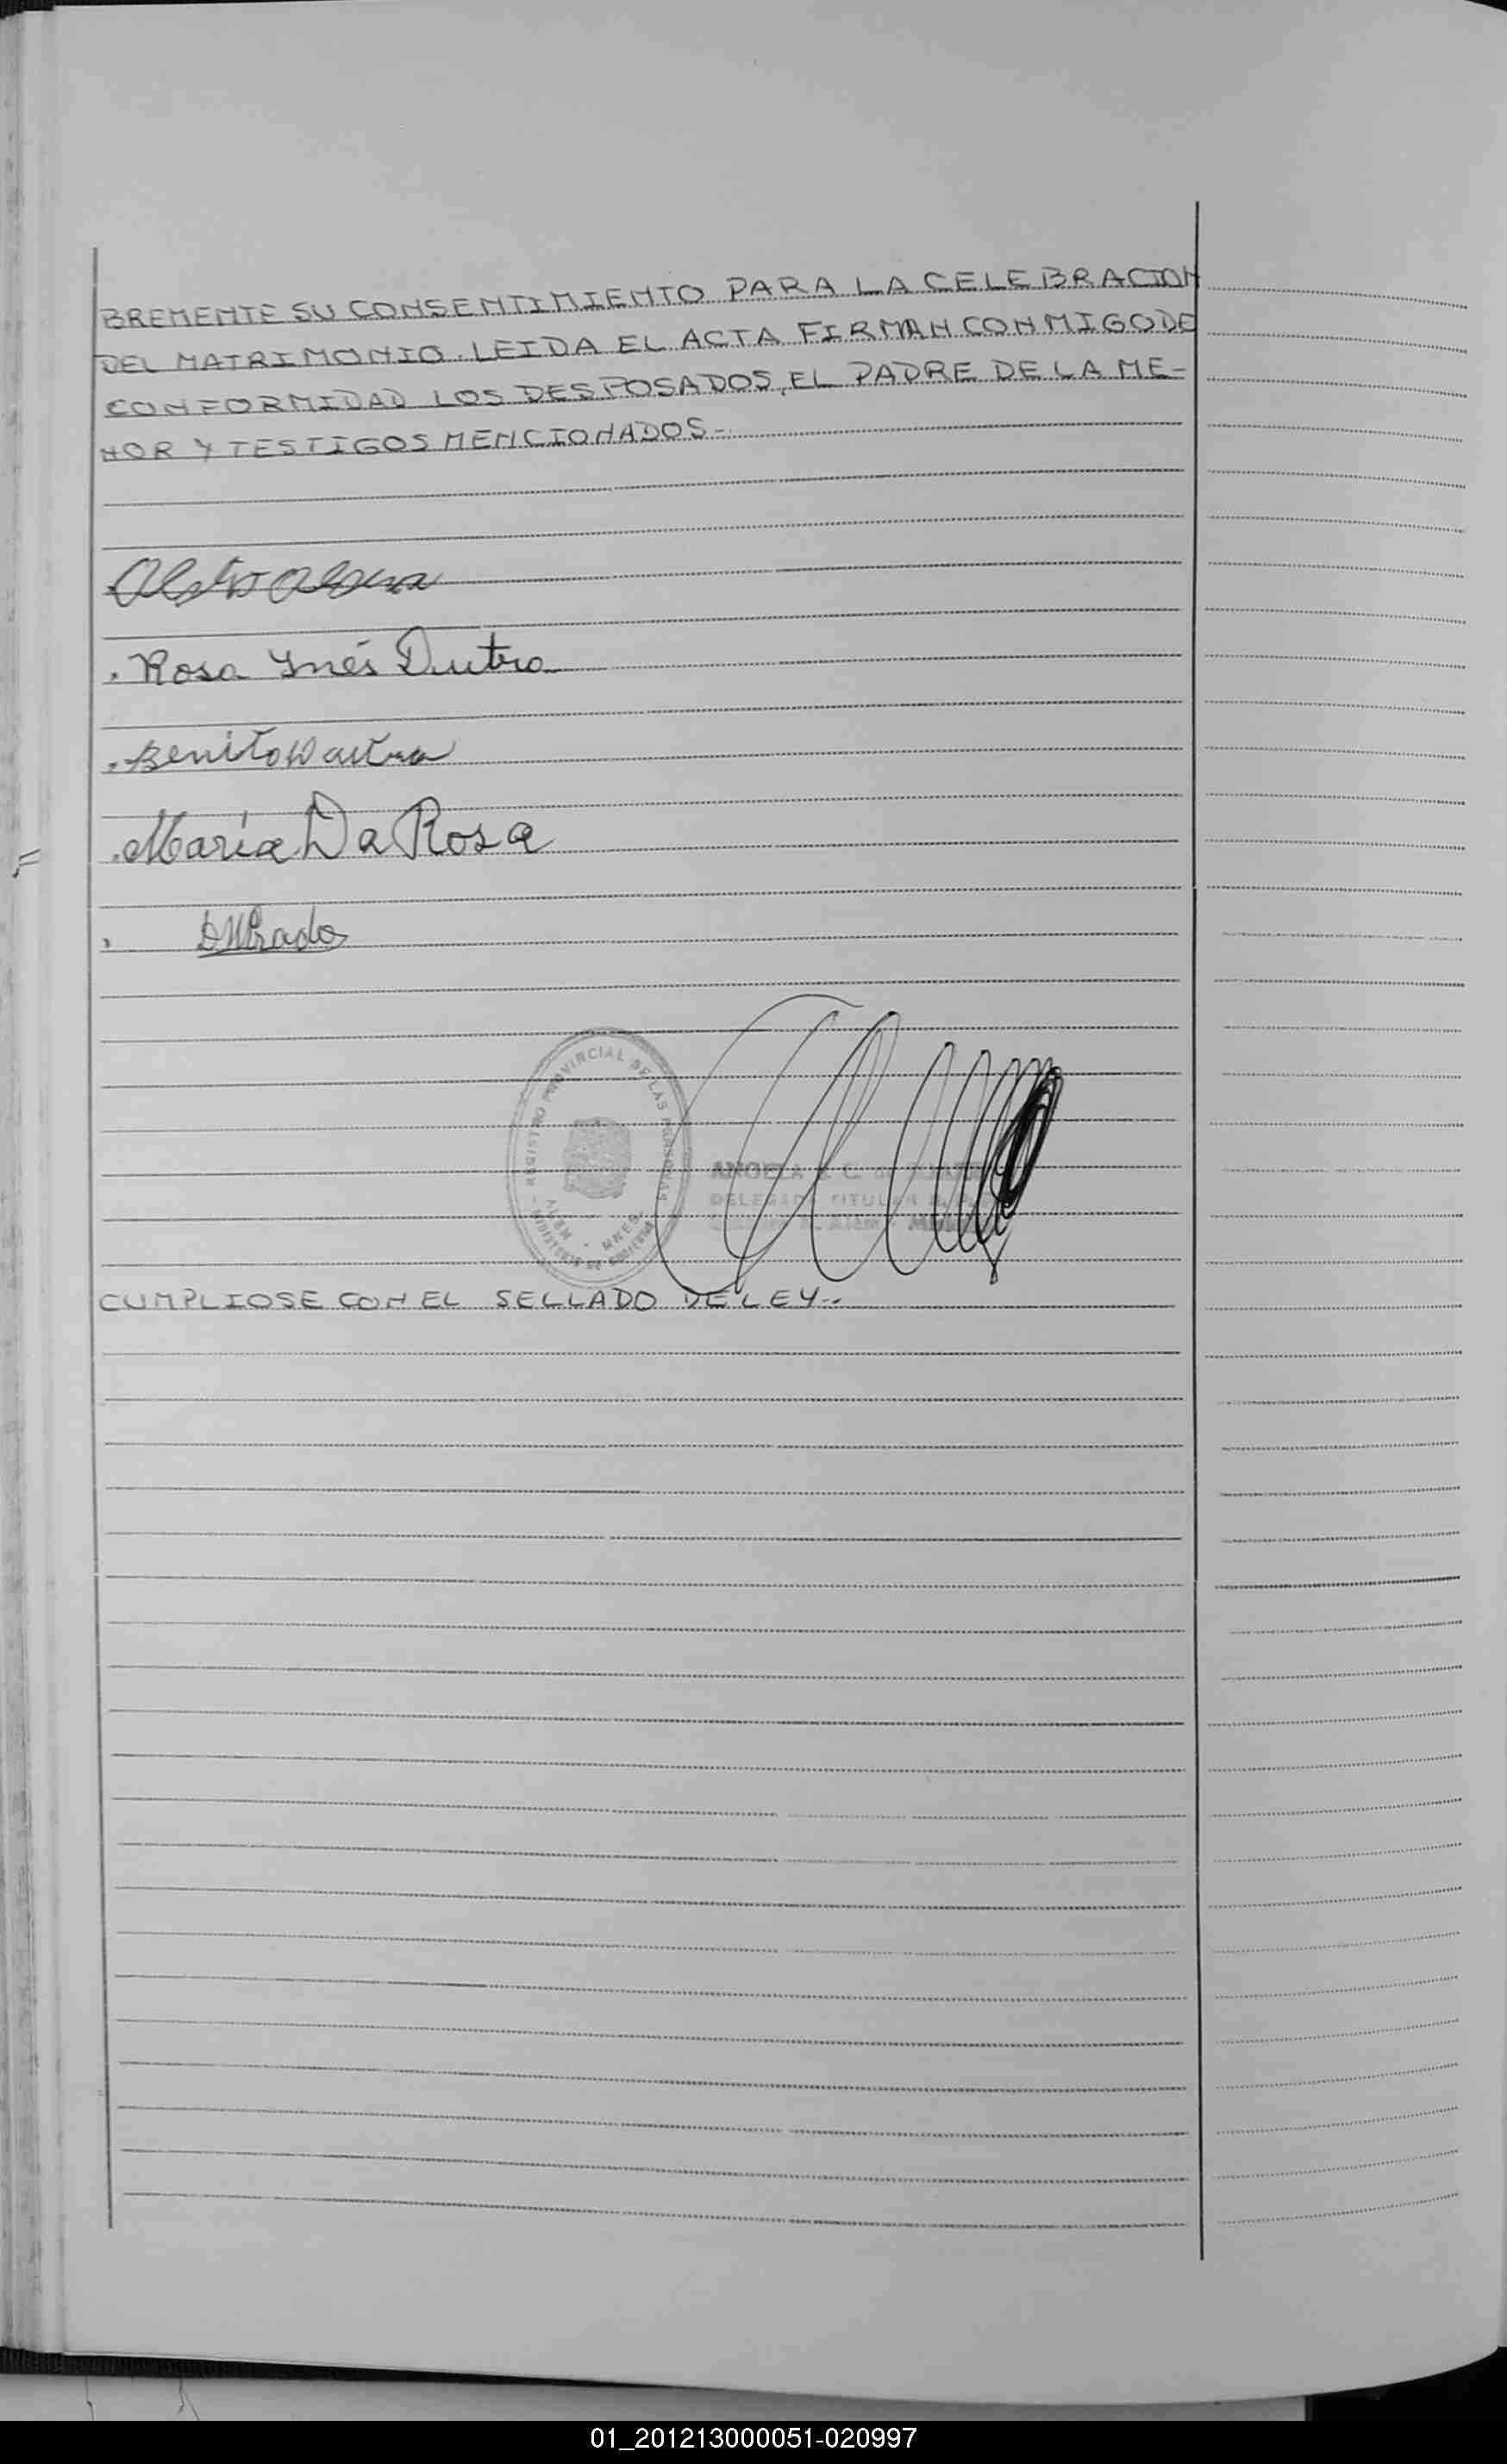 BREMENTE SU CONSENTIMIENTO PARA LA CELEBRACION
DEL MATRIMONIO. LEIDA EL ACTA FIRMAN CONMIGO DE
CONFORMIDAD LOS DESPOSADOS, EL PADRE DE LA ME-
NOR Y TESTIGOS MENCIONADOS-
. Rosa Ynés Dutra
. Benito Dutra
. María Da Rosa
Prado
REGISTRO PROVINCIAL DE LAS PERSONAS
ALEM - MNES.
MINISTERIO DE GOBIERNO
ANGELA C. de
DELEGADA TITULAR R. P.
N. Alem - 
CUMPLIOSE CON EL SELLADO DE LEY-.
01_201213000051-020997